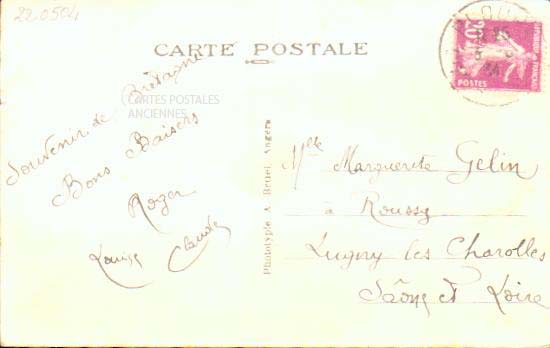 220504
CARTE POSTALE
CARTES POSTALES
ANCIENNES
Souvenir de Bretagne
Bons Baisers
Roger
Louise Claude
Phototypie A. Bruel, Angers
Mlle Marguerite Gelin
à Roussy
Lugny les Charolles
Saône et Loire
20c
POSTES